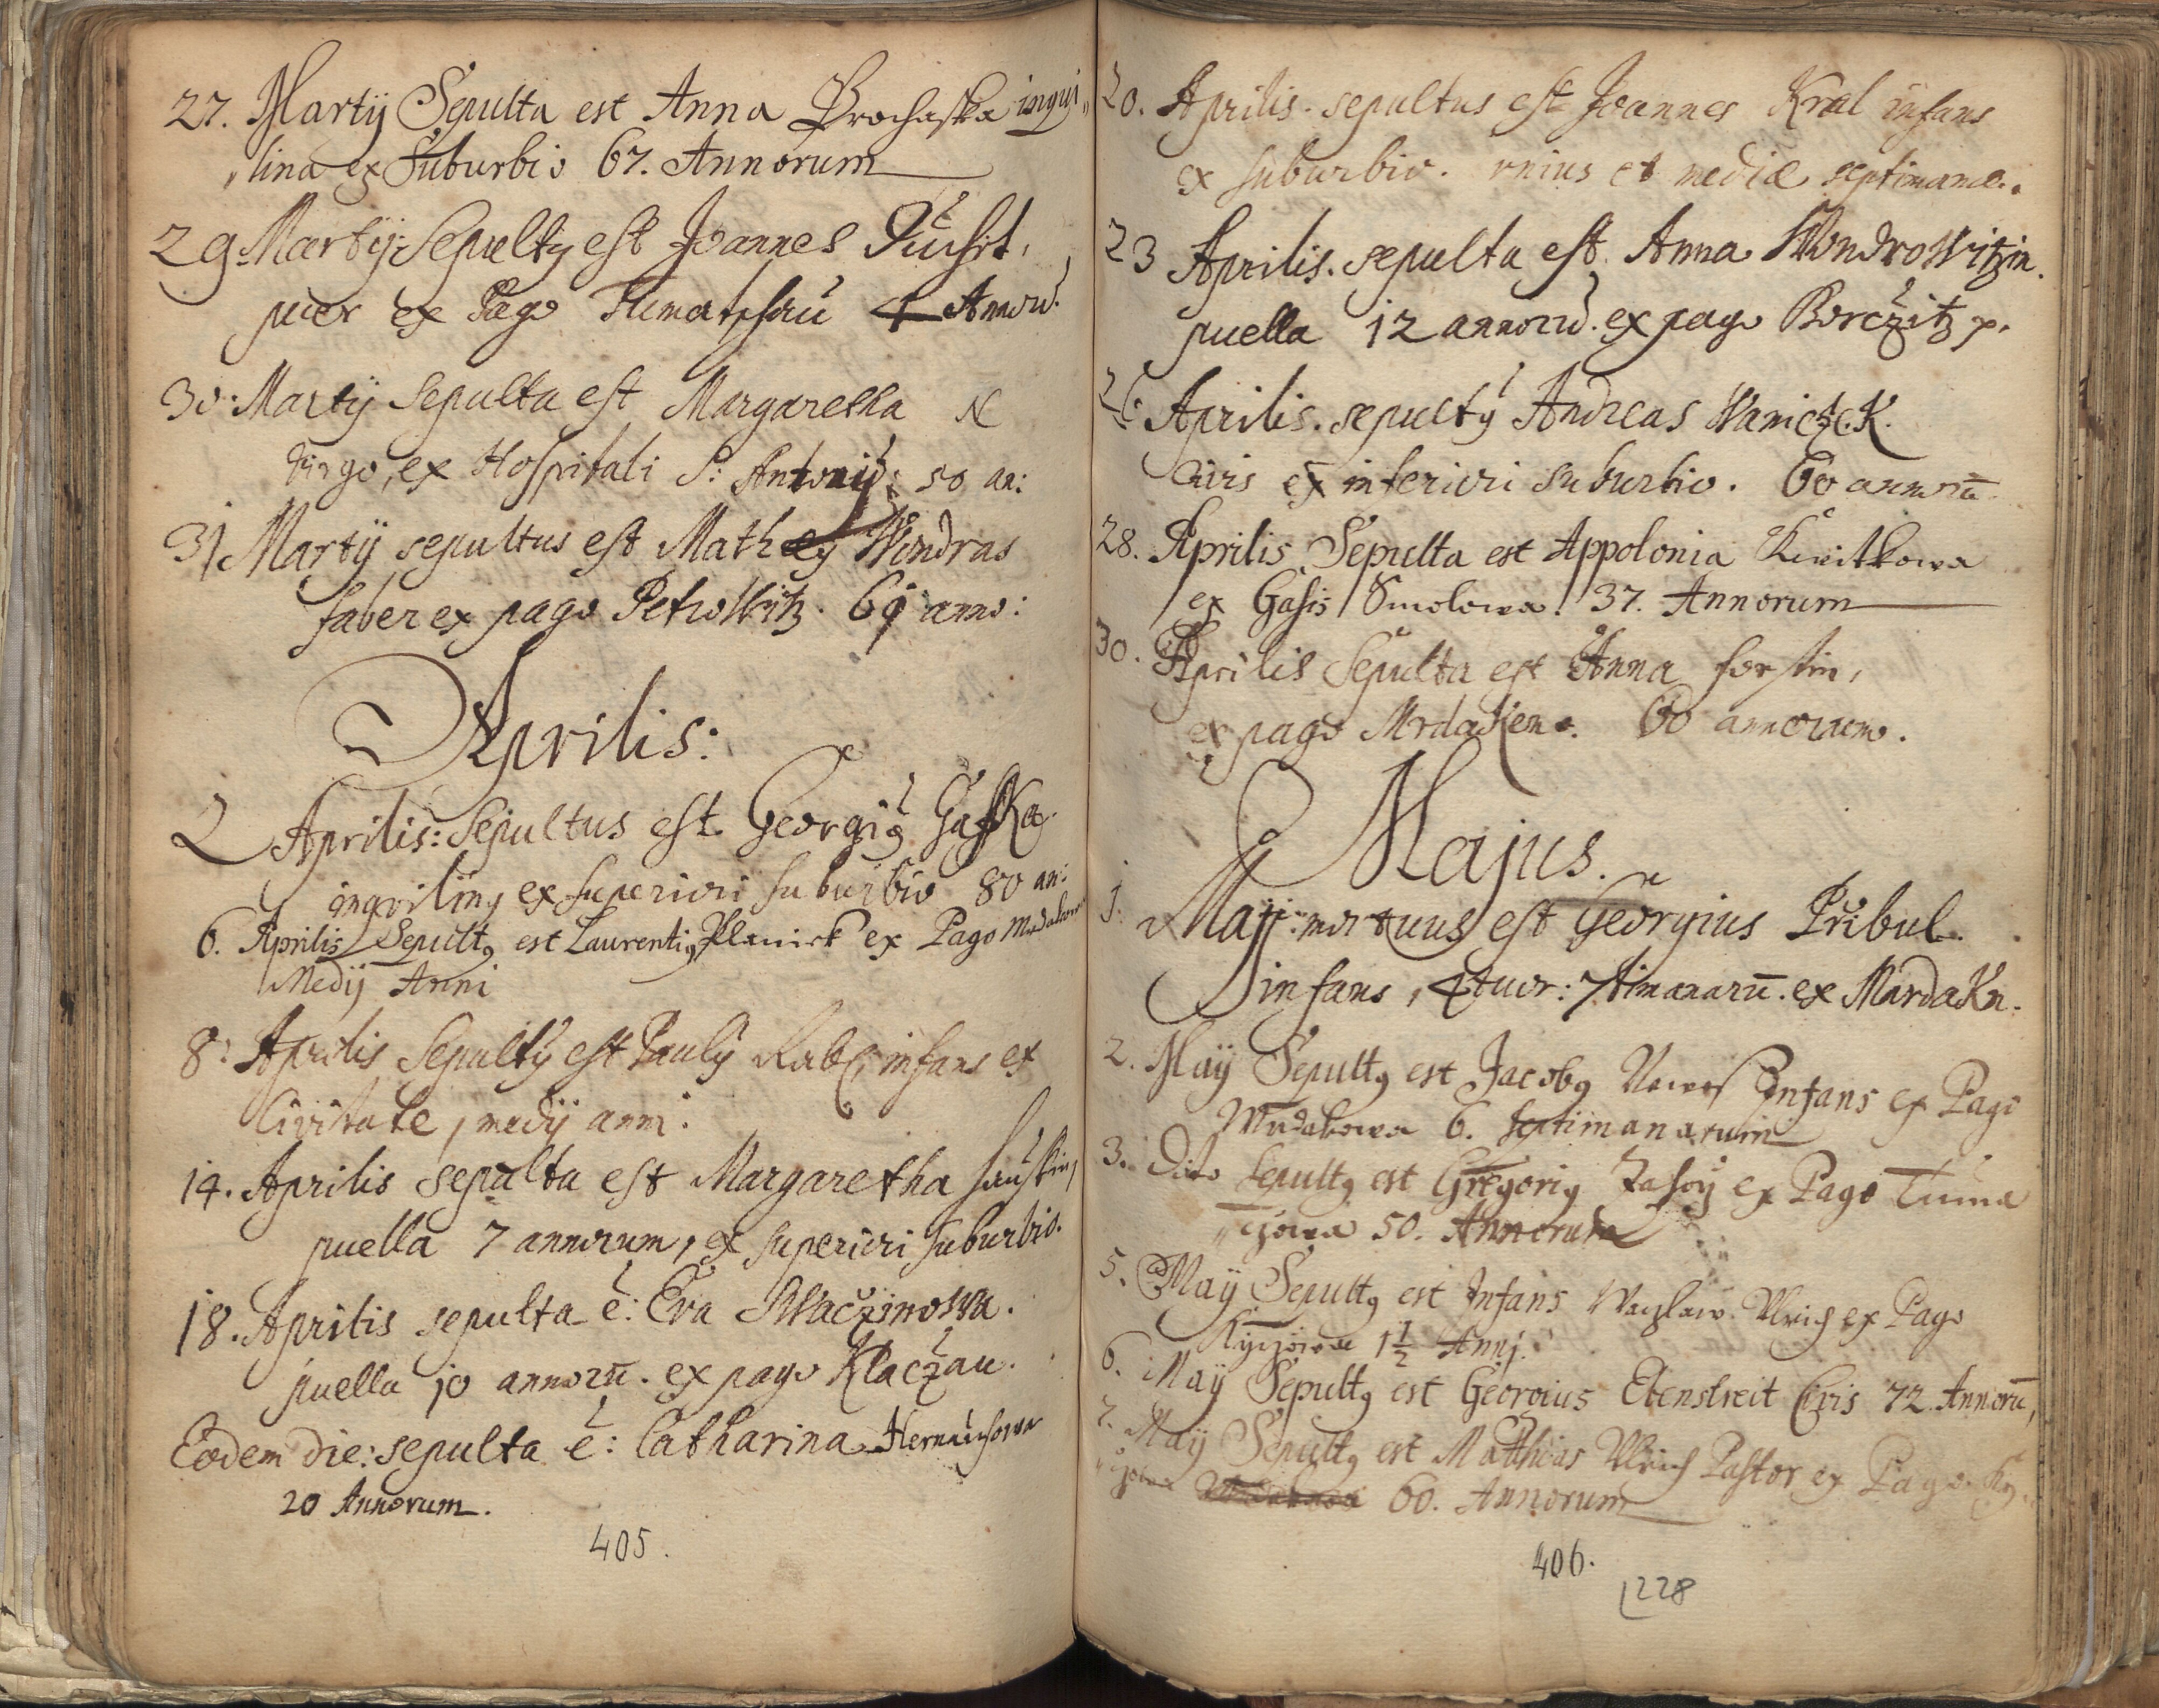 27. Martij Sepulta est Anna Prochaska inqui„
„lina ex Suburbio 67. Annorum
29. Martij: Sepultq est Joannes
puer ex Pago 4 Annoru.
30. Martij Sepulta est Margaretha N
virgo, ex Hospitali S: Antonij: 50 an:
31 Martij sepultus est Mathey Wondras
faber ex pago Petrowitz. 61 anno:
Aprilis:
2 Aprilis: Sepultus est Georgiq
inqvilinq ex superiori suburbio 80 an:
6. Aprilis Sepultq est Laurentiq ex Pago Mrdakowa
Medij Anni
8: Aprilis Sepultq est Paulq infans ex
Civitate, medij anni.
14. Aprilis sepulta est Margaretha
puella 7 annorum, ex superiori suburbio.
18. Aprilis sepulta e: Eva
puella jo annorū. ex pago Klaczau.
Eodem die: sepulta e: Catharina
20 Annorum.
405.
20. Aprilis. sepultus est Joannes Kral infans
ex suburbio. unius et mediæ septimanæ.
23 Aprilis. sepulta est Anna Wondrowitzin.
puella 12 annoru. ex pago Borczitz
26 Aprilis. sepultq Andreas WaniczeK.
Civis ex inferiori suburbio. 60 annorū.
28. Aprilis Sepulta est Appolonia Kwitkowa
ex Casis Smolowa. 37. Annorum
30. Aprilis Sepulta est Anna
ex pago 60 annorum.
Majus.
j. Maij: mortuus est Georgius Přibul.
infans, 4tuor: 7timanarū. ex MardaKn.
2. Maÿ Sepultq est Jacobq Infans ex Pago
Mrdakowa 6. septimanarum
3. Dito Sepultq est Gregoriq ex Pago Tuma
„czowa 50. Annorum
5. Maÿ Sepultq est Infans Wazlaw Ulrich ex Pago
Kyczowa 1 1/2 Annj.
6. Maÿ Sepultq est Georgius Ebenstreit Civis 72 Annorū,
7. Maÿ Sepultq est Matthias Ulrich Pastor ex Pago Ky„
„czowa 60. Annorum
406.
228